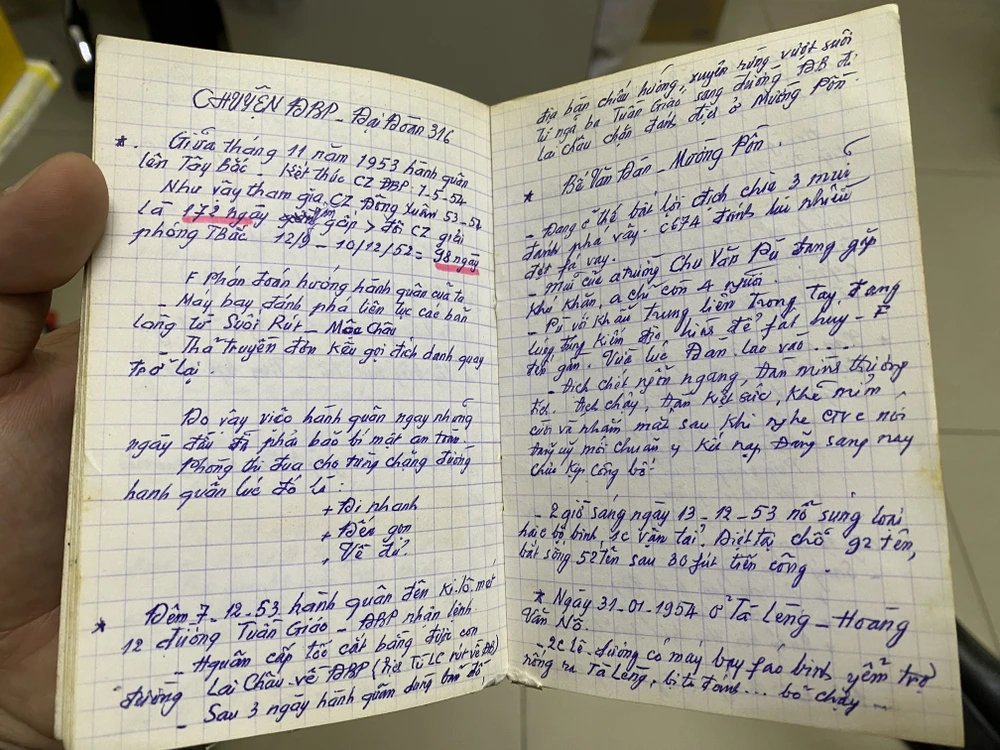 CHUYỆN ĐBP - Đại Đoàn 316
* Giữa tháng 11 năm 1953 hành quân
lên Tây Bắc - Kết thúc CZ ĐBP 7-5-54
Như vậy tham gia CZ Đông Xuân 53-54
là 172 ngày gấp > đôi CZ giải
phóng TBắc 12/9 - 10/12/52 = 98 ngày
F Phán đoán hướng hành quân của ta
- Máy bay đánh phá liên tục các bản
làng từ Suối Rút - Mộc Châu
- Thả truyền đơn kêu gọi đích danh quay
trở lại.
Do vậy việc hành quân ngay những
ngày đầu đã phải bảo bí mật an toàn.
Phong thi đua cho từng chặng đường
hành quân lúc đó là:
+ Đi nhanh
+ Đến gọn
+ Về đủ.
* Đêm 7-12-53 hành quân đến Ki-lô-mét
12 đường Tuần Giáo - ĐBP nhận lệnh
- Hquân cấp tốc cắt bằng được con
đường Lai Châu về ĐBP (địch Từ LC rút về ĐB)
- Sau 3 ngày hành quân dùng bản đồ
địa bàn chiếu hướng, xuyên rừng vượt suối
từ ngã ba Tuần Giáo sang đường ĐB đi
Lai Châu chặn đánh địch ở Mường Pồn.
* Bế Văn Đàn - Mường Pồn.
- Đang ở thế bất lợi địch chia 3 mũi
đánh phá vây. C674 đánh lui nhiều
đợt fá vây.
- Mũi của atrưởng Chu Văn Pù đang gặp
khó khăn, a chỉ còn 4 người.
- Pù với khẩu trung liên trong tay, đang
lúng túng kiếm địa hình để fát huy - F
đến gần. Vừa lúc Đàn lao vào ....
- địch chết ngổn ngang, Đàn mình thương
địch chạy, Đàn kiệt sức, khẽ mỉm
cười và nhắm mắt sau khi nghe CTVC nói
Đảng uỷ mới chuẩn y Kết nạp Đảng sáng nay
chưa kịp công bố.
- 2 giờ sáng ngày 13-12-53 nổ súng
bộ binh, 1c vận tải. Diệt tại chỗ 92 tên,
bắt sống 52 tên sau 30 fút tiến công.
* Ngày 31-01-1954 ở Tà Lèng - Hoàng
Văn Nô.
- 2C lê-dương có máy bay fáo binh yểm trợ
rống ra Tà Lèng, bị ta đánh ... bỏ chạy ...